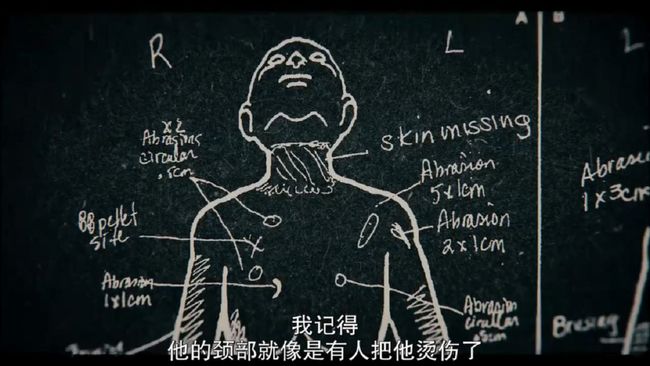 A
B
R
L
L
skin missing
x2
Abrasions
circular
.5cm
Abrasion
5x1cm
Abrasion
1x3cm
BB pellet
site
Abrasion
2x1cm
Abrasion
1x1cm
Abrasion
circular
.5cm
Brusing
我记得
他的颈部就像是有人把他烫伤了